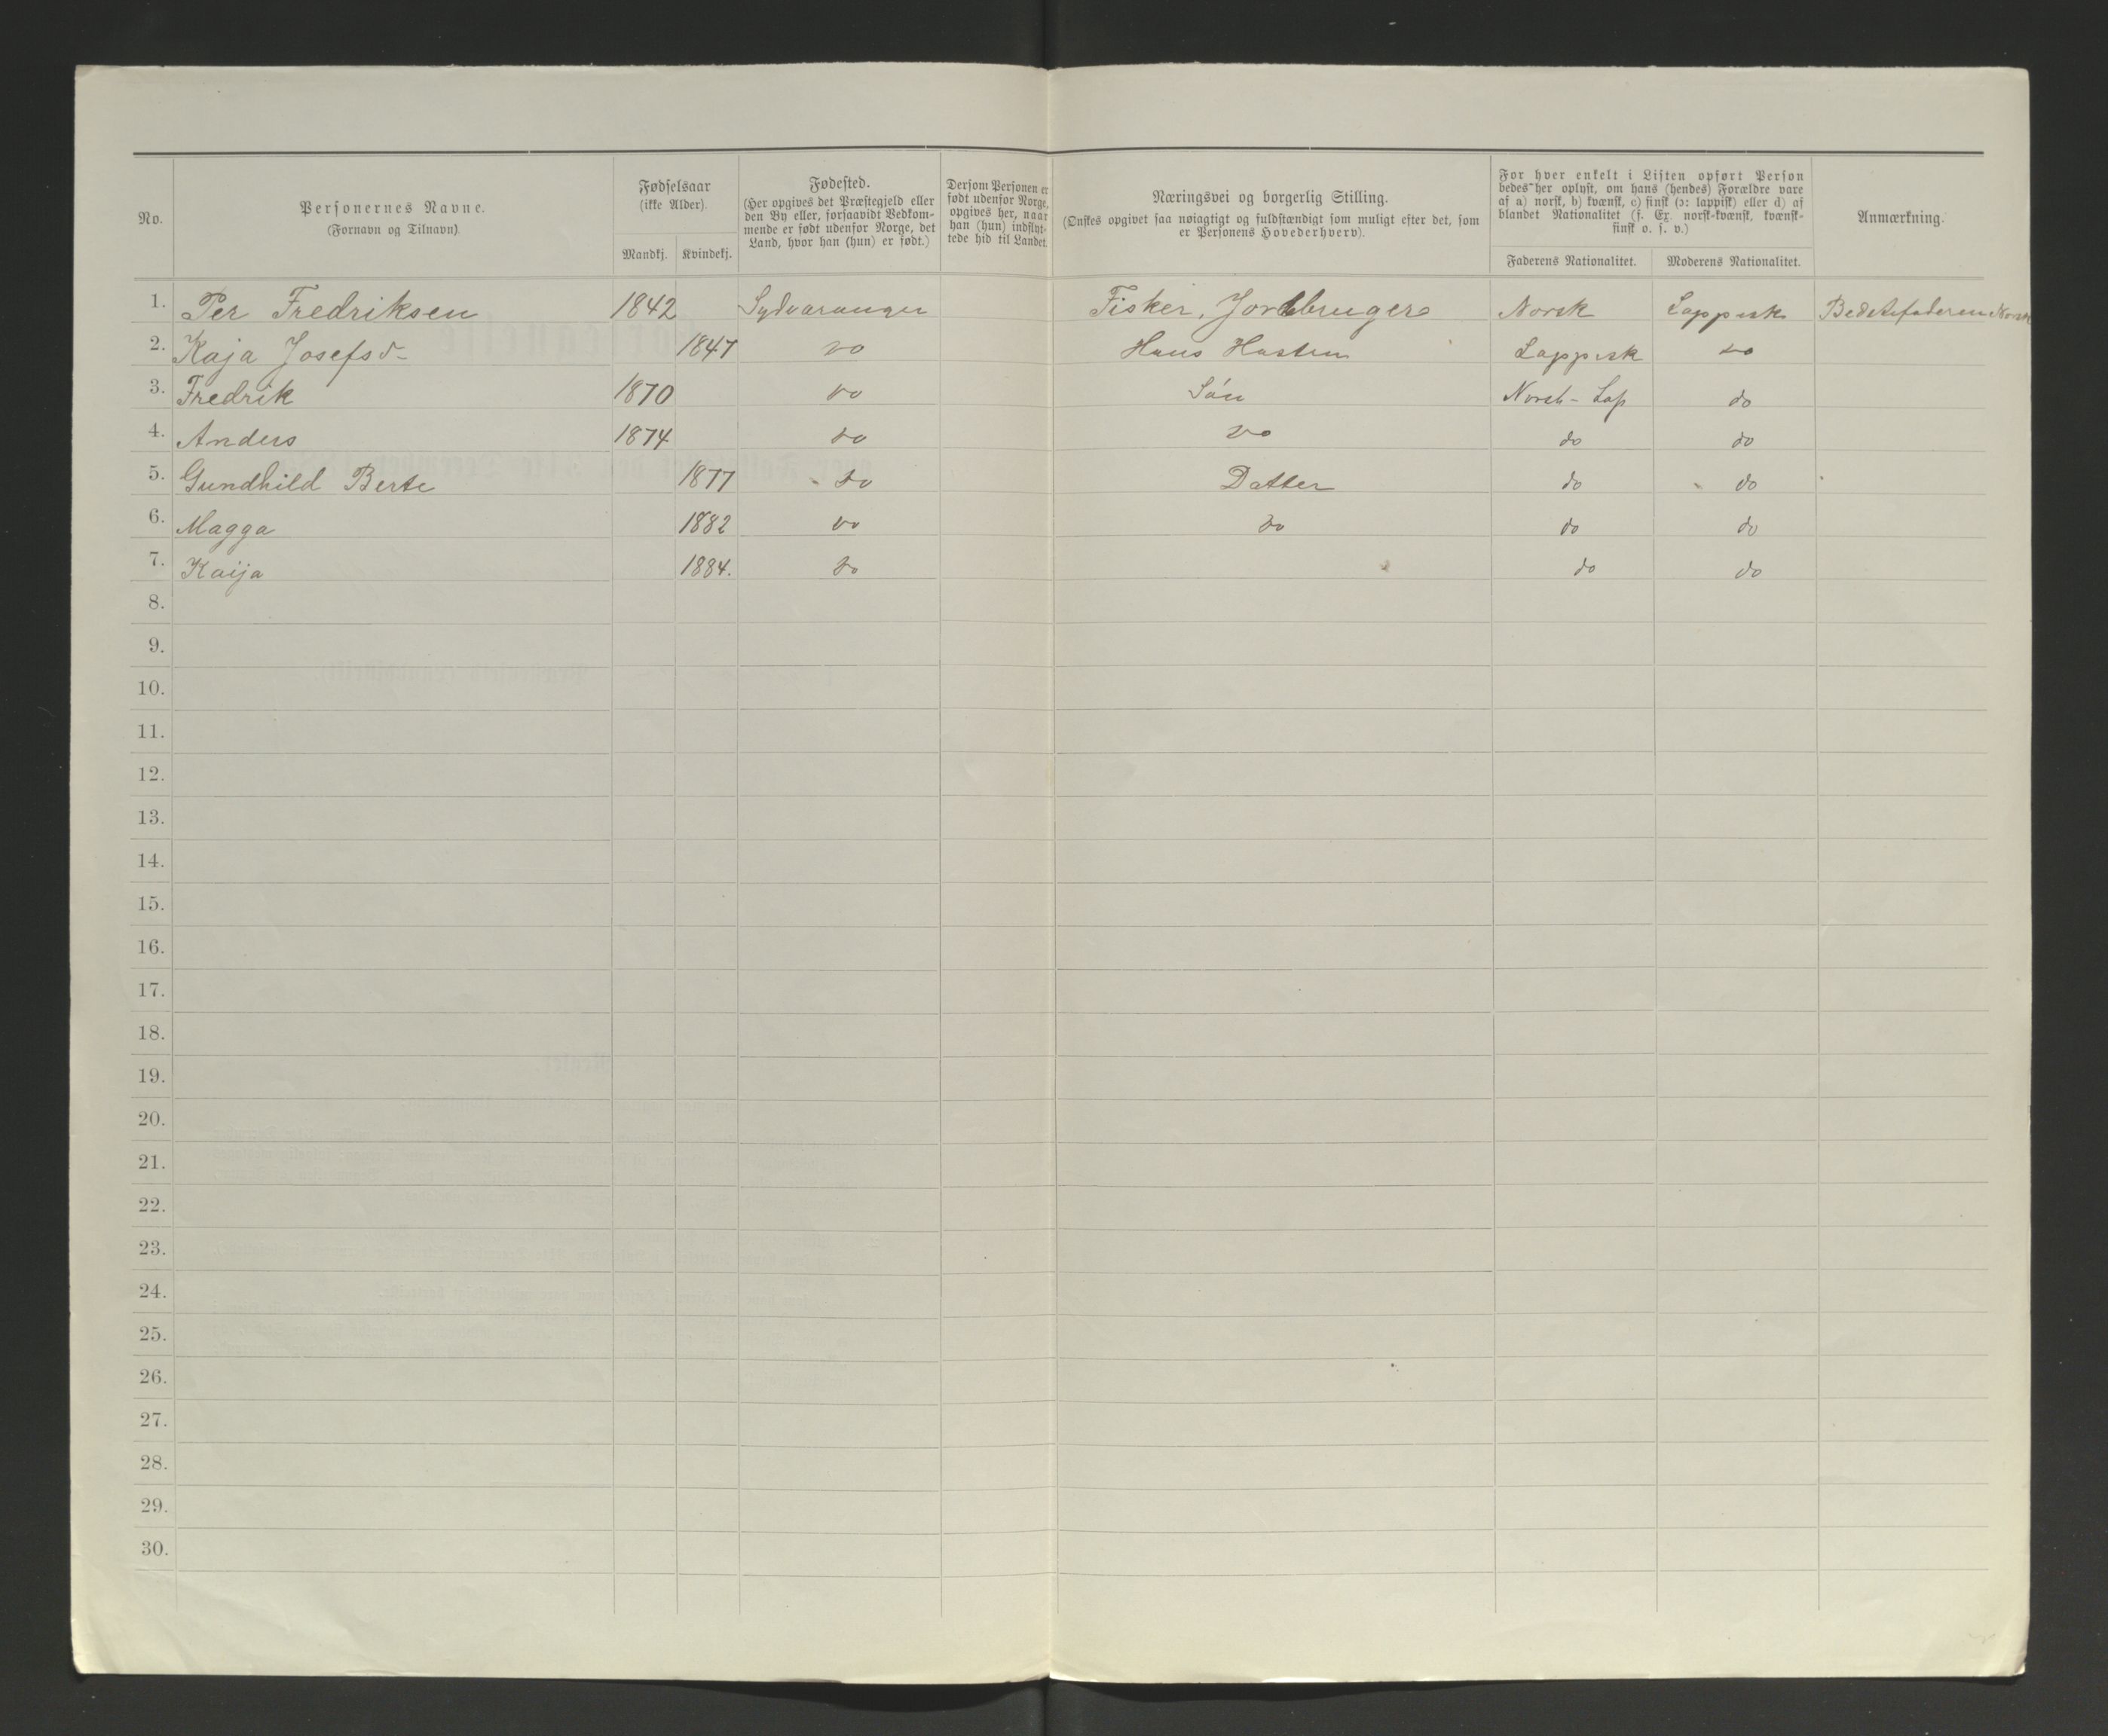 No.
Personernes Navne.
(Fornavn og Tilnavn).
Fødselsaar
(ikke Alder).
Mandkj. Kvindekj.
Fødested.
(Her opgives det Præstegjeld eller
den By eller, forsaavidt Vedkom-
mende er født udenfor Norge, det
Land, hvor han (hun) er født.)
Dersom Personen er
født udenfor Norge,
opgives her, naar
han (hun) indflyt-
tede hid til Landet.
Næringsvei og borgerlig Stilling.
(Ønskes opgivet saa nøiagtigt og fuldstændigt som muligt efter det, som
er Personens Hovederhverv).
For hver enkelt i Listen opført Person
bedes her oplyst, om hans (hendes) Forældre vare
af a) norsk, b) kvænsk, c) finsk (ɔ: lappisk) eller d) af
blandet Nationalitet (f. Ex. norsk-kvænsk, kvænsk-
finsk o. s. v.)
Faderens Nationalitet. Moderens Nationalitet.
Anmærkning.
1. Per Fredriksen 1842 Sydvaranger Fisker, Jordbruger Norsk Lappisk Bedstefaderen Norsk
2. Kaja Josefsd- 1847 do Hans Hustru Lappisk do
3. Fredrik 1870 do Søn Norsk-Lap do
4. Anders 1874 do do do do
5. Gundhild Berte 1877 do Datter do do
6. Magga 1882 do do do do
7. Kaija 1884. do do do
8.
9.
10.
11.
12.
13.
14.
15.
16.
17.
18.
19.
20.
21.
22.
23.
24.
25.
26.
27.
28.
29.
30.